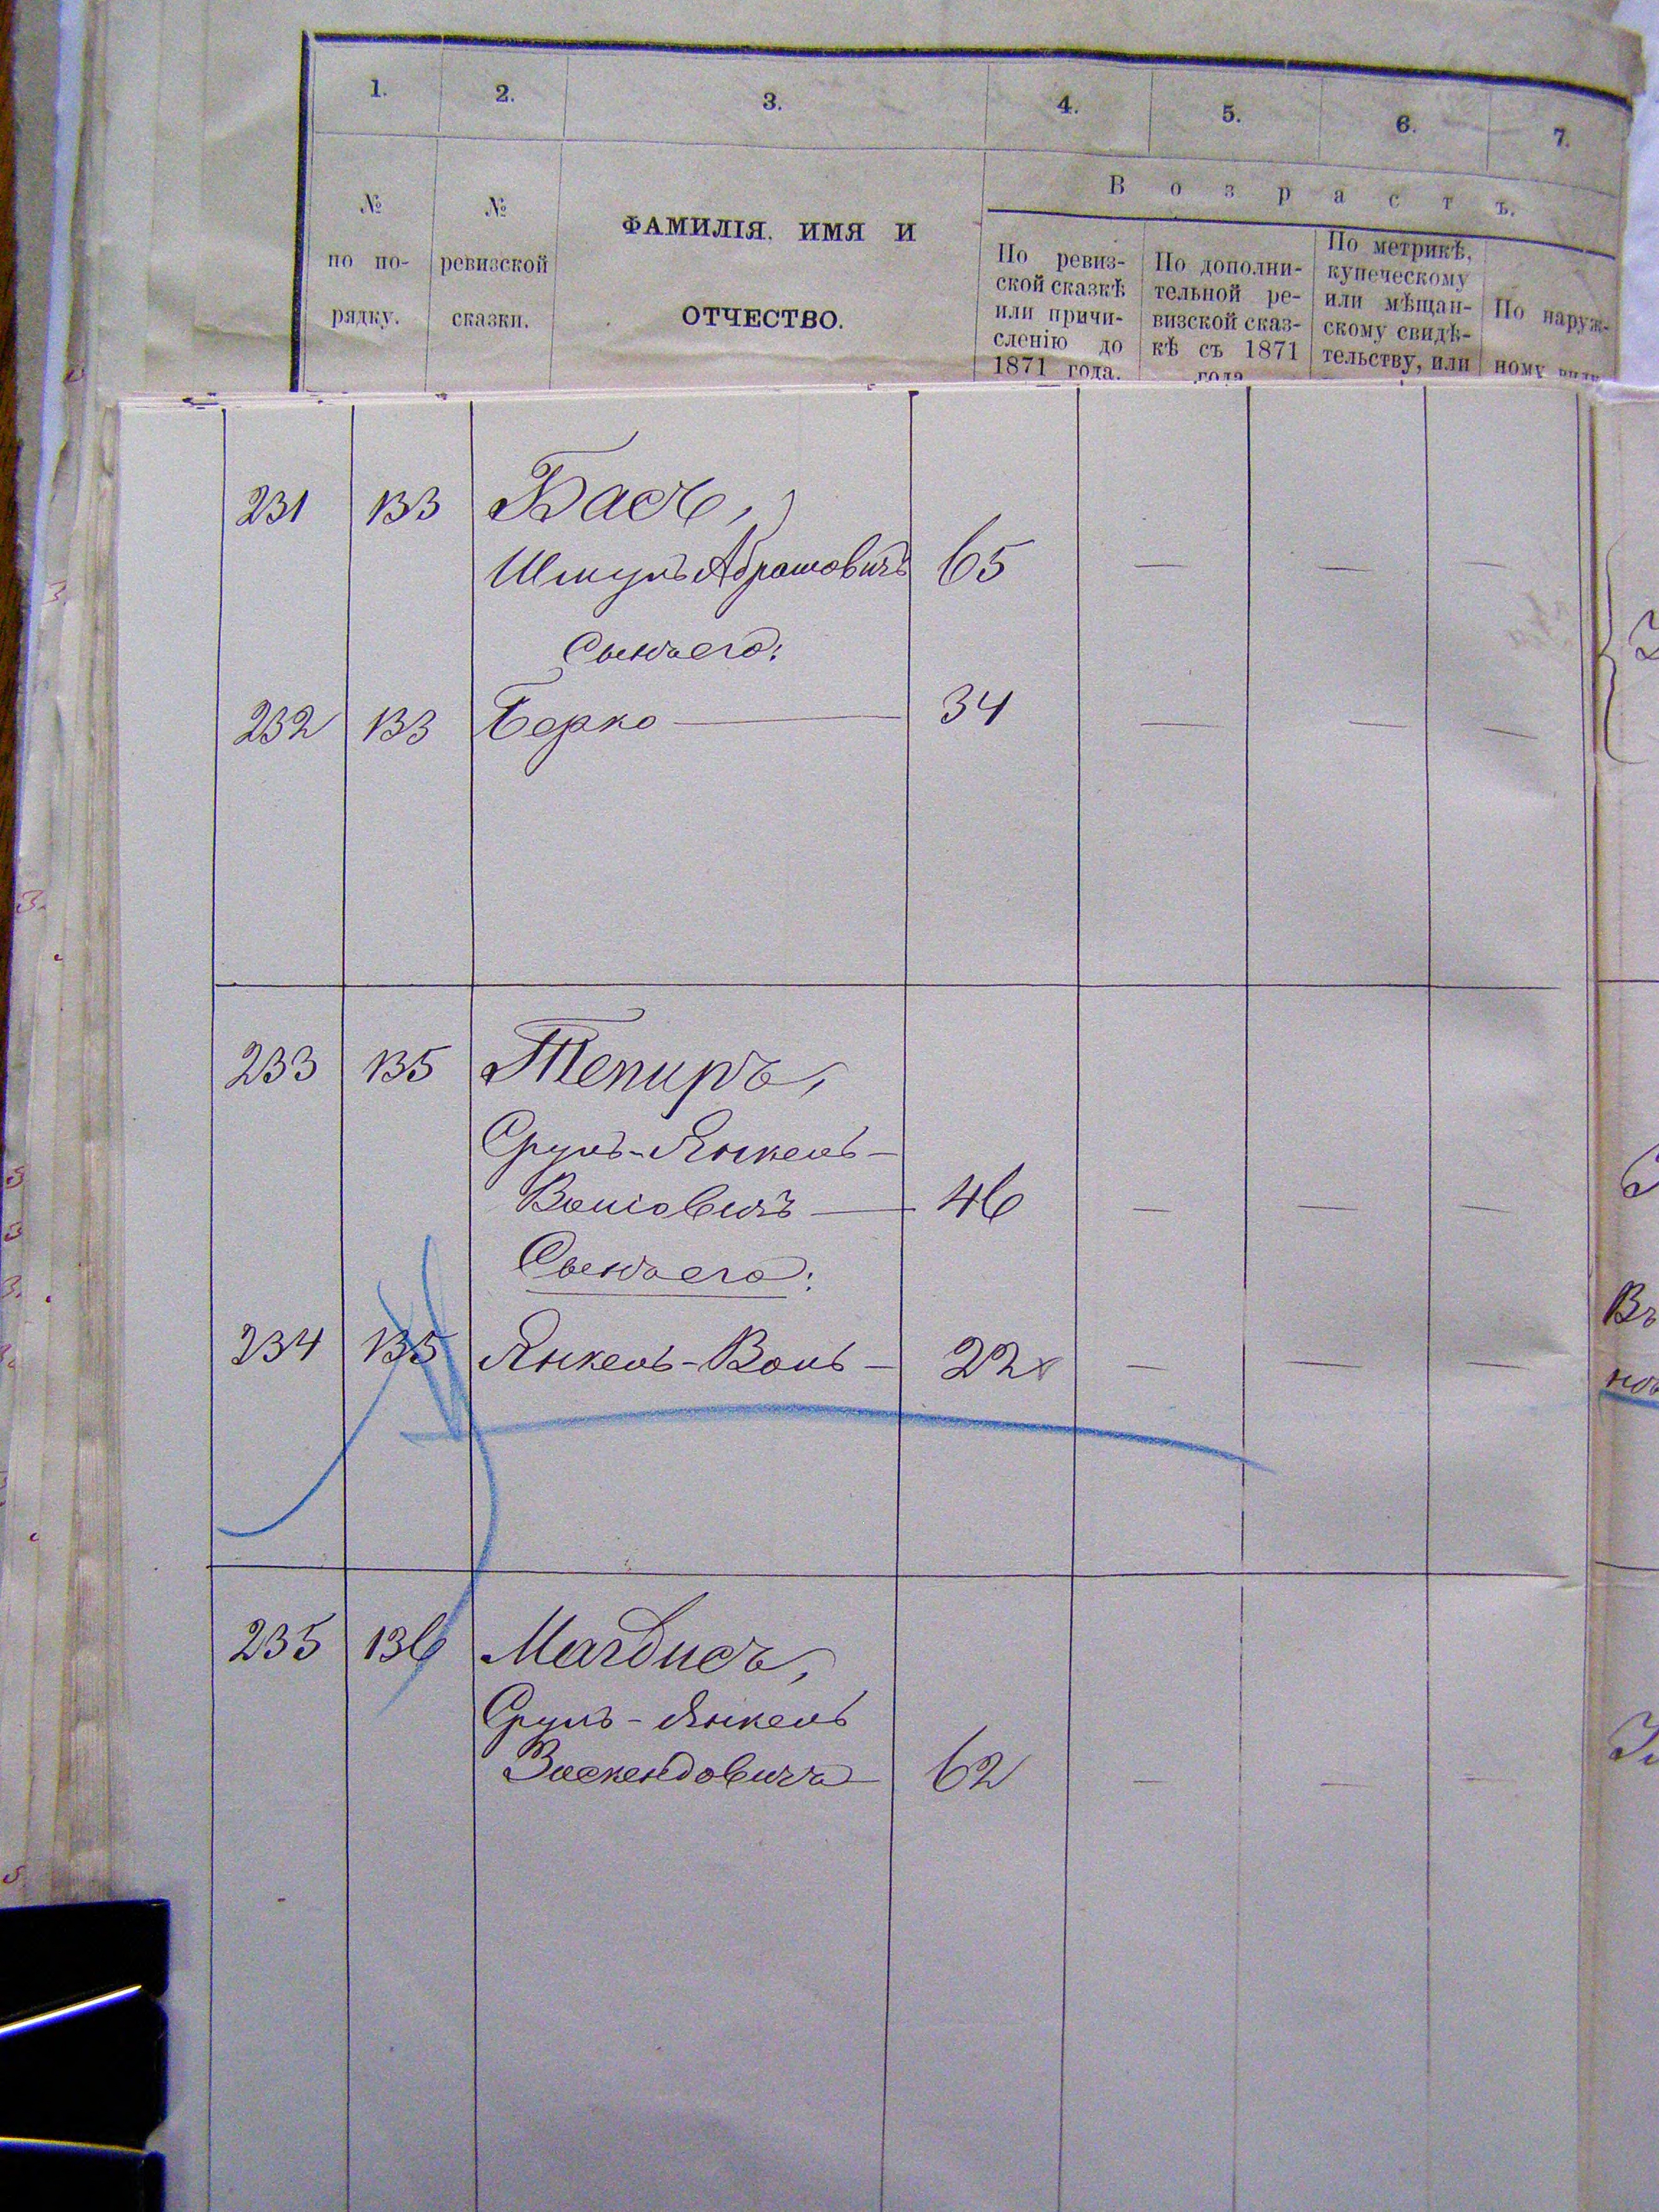 1. 2. 3. 4. 5. 6. 7.
В о з р а с т ъ.
№ по по-рядку.
№ ревизской сказки.
ФАМИЛІЯ. ИМЯ И
ОТЧЕСТВО.
По ревиз-
ской сказкѣ
или причи-
сленію до
1871 года.
По дополни-
тельной ре-
визской сказ-
кѣ съ 1871
года
По метрикѣ,
купеческому
или мѣщан-
скому свидѣ-
тельству, или
По наруж-
ному виду
231 133 Басъ,
Шмуль Абрамовичъ 65 — — —
Сынъ его:
232 133 Берко — 34 — — —
233 135 Тепиръ,
Сруль-Янкель-
Волковичъ — 46 — — —
Сынъ его:
234 135 Янкель-Воль — 22 — — —
235 136 Магдисъ,
Сруль-Янкель
Зюскендовичъ 62 — — —